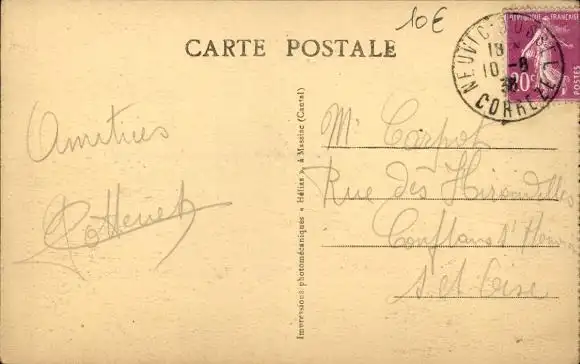 10€
CARTE POSTALE
RÉPUBLIQUE FRANÇAISE
20c
POSTES
NEUVIC D'USSEL
18
10 -8
38
CORREZE
Amitiés
Impressions photomécaniques « Hélias », à Massiac (Cantal)
Mr Carpot
Rue des Hirondelles
Conflans
S. et Oise